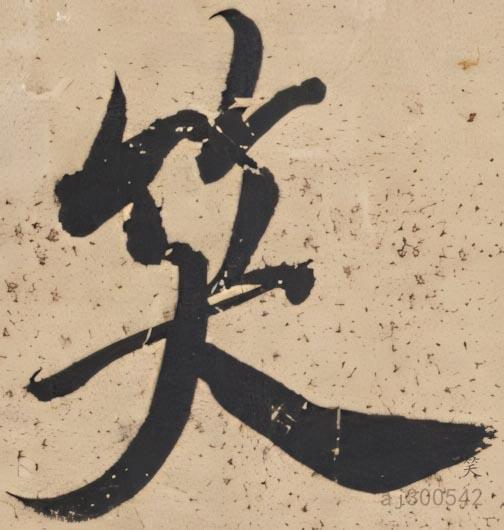 笑
笑
ajs00542